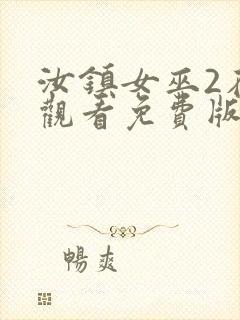 汝鎮女巫2
觀看免費版
暢爽